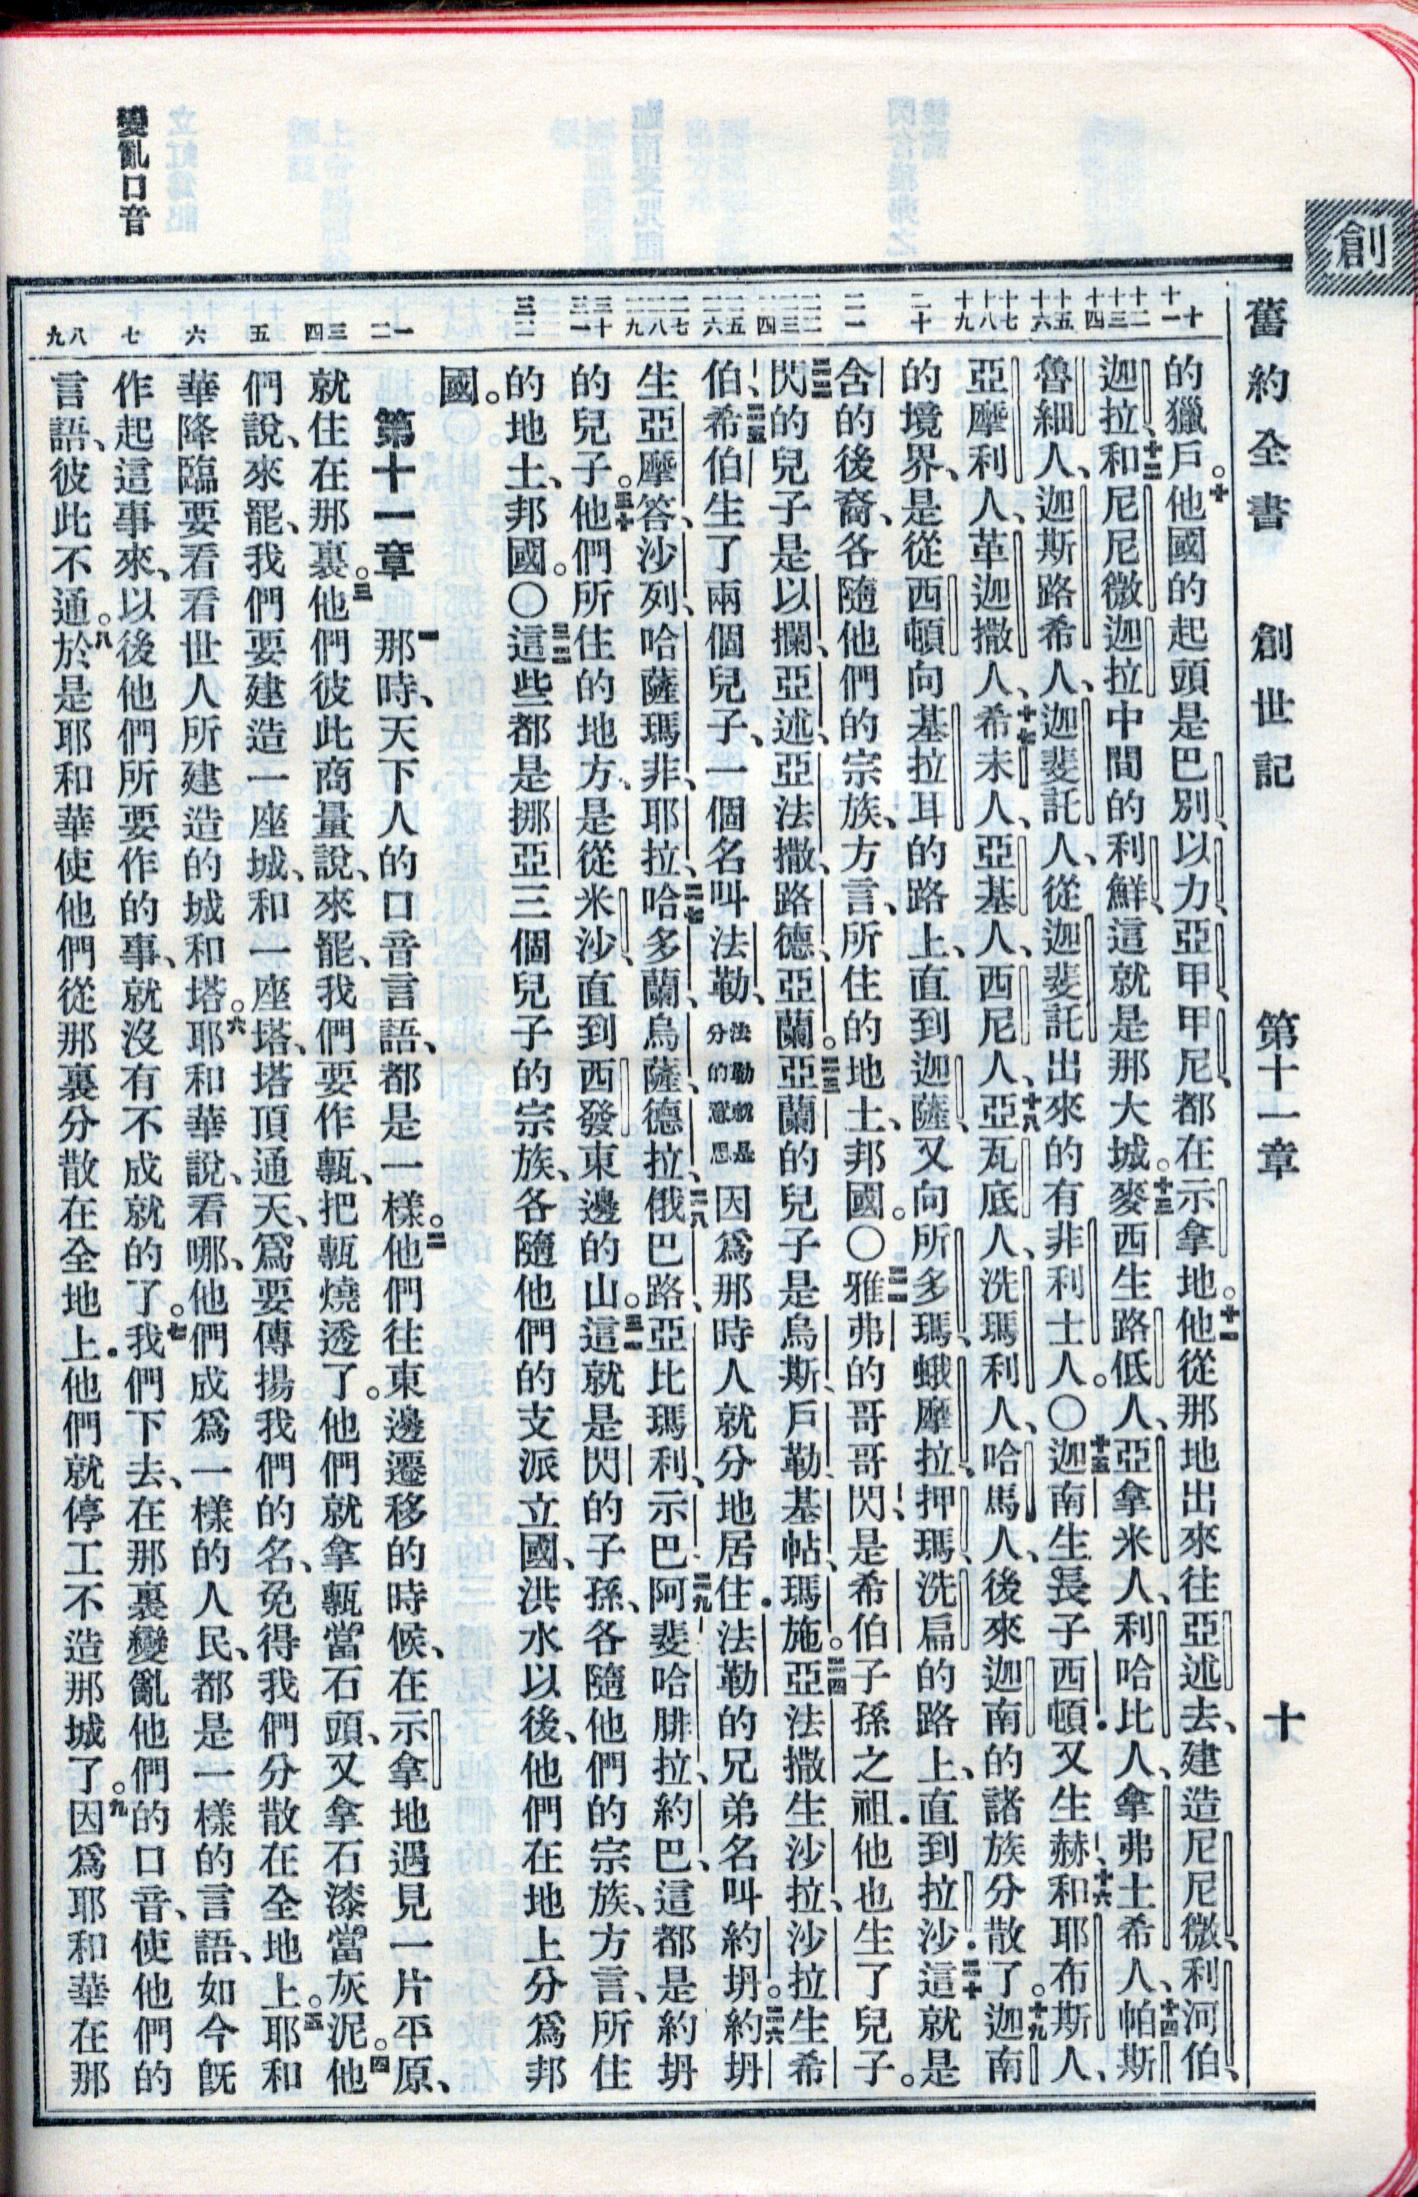 創
舊約全書 創世記 第十一章 十
十 十一
的獵戶。十他國的起頭是巴別、以力、亞甲、甲尼、都在示拿地。十一他從那地出來往亞述去、建造尼尼微、利河伯、
十二 十三 十四
迦拉、十二和尼尼微迦拉中間的利鮮、這就是那大城。十三麥西生路低人、亞拿米人、利哈比人、拿弗土希人、十四帕斯
十五 十六
魯細人、迦斯路希人、迦斐託人、從迦斐託出來的有非利士人。〇十五迦南生長子西頓、又生赫、十六和耶布斯人、
十七 十八 十九
亞摩利人、革迦撒人、十七希未人、亞基人、西尼人、十八亞瓦底人、洗瑪利人、哈馬人、後來迦南的諸族分散了。十九迦南
二十
的境界、是從西頓向基拉耳的路上、直到迦薩、又向所多瑪、蛾摩拉、押瑪、洗扁的路上、直到拉沙．二十這就是
二一
含的後裔、各隨他們的宗族、方言、所住的地土、邦國。〇二一雅弗的哥哥閃、是希伯子孫之祖．他也生了兒子。
二二 二三 二四
二二閃的兒子是以攔、亞述、亞法撒、路德、亞蘭。二三亞蘭的兒子是烏斯、戶勒、基帖、瑪施。二四亞法撒生沙拉、沙拉生希
二五 二六
伯、二五希伯生了兩個兒子、一個名叫法勒、法勒就是分的意思因爲那時人就分地居住．法勒的兄弟名叫約坍。二六約坍
二七 二八 二九
生亞摩答、沙列、哈薩瑪非、耶拉、二七哈多蘭、烏薩、德拉、二八俄巴路、亞比瑪利、示巴、二九阿斐、哈腓拉、約巴、這都是約坍
三十 三一
的兒子。三十他們所住的地方、是從米沙、直到西發東邊的山。三一這就是閃的子孫、各隨他們的宗族、方言、所住
三二
的地土、邦國。〇三二這些都是挪亞三個兒子的宗族、各隨他們的支派立國、洪水以後、他們在地上分爲邦
國。
一 二
第十一章 一那時、天下人的口音言語、都是一樣。二他們往東邊遷移的時候、在示拿地遇見一片平原、
三 四
就住在那裏。三他們彼此商量說、來罷、我們要作甎、把甎燒透了。他們就拿甎當石頭、又拿石漆當灰泥。四他
五
們說、來罷、我們要建造一座城、和一座塔、塔頂通天、爲要傳揚我們的名、免得我們分散在全地上。五耶和
六
華降臨要看看世人所建造的城和塔。六耶和華說、看哪、他們成爲一樣的人民、都是一樣的言語、如今既
七
作起這事來、以後他們所要作的事、就沒有不成就的了。七我們下去、在那裏變亂他們的口音、使他們的
八 九
言語、彼此不通。八於是耶和華使他們從那裏分散在全地上．他們就停工不造那城了。九因爲耶和華在那
變亂口音